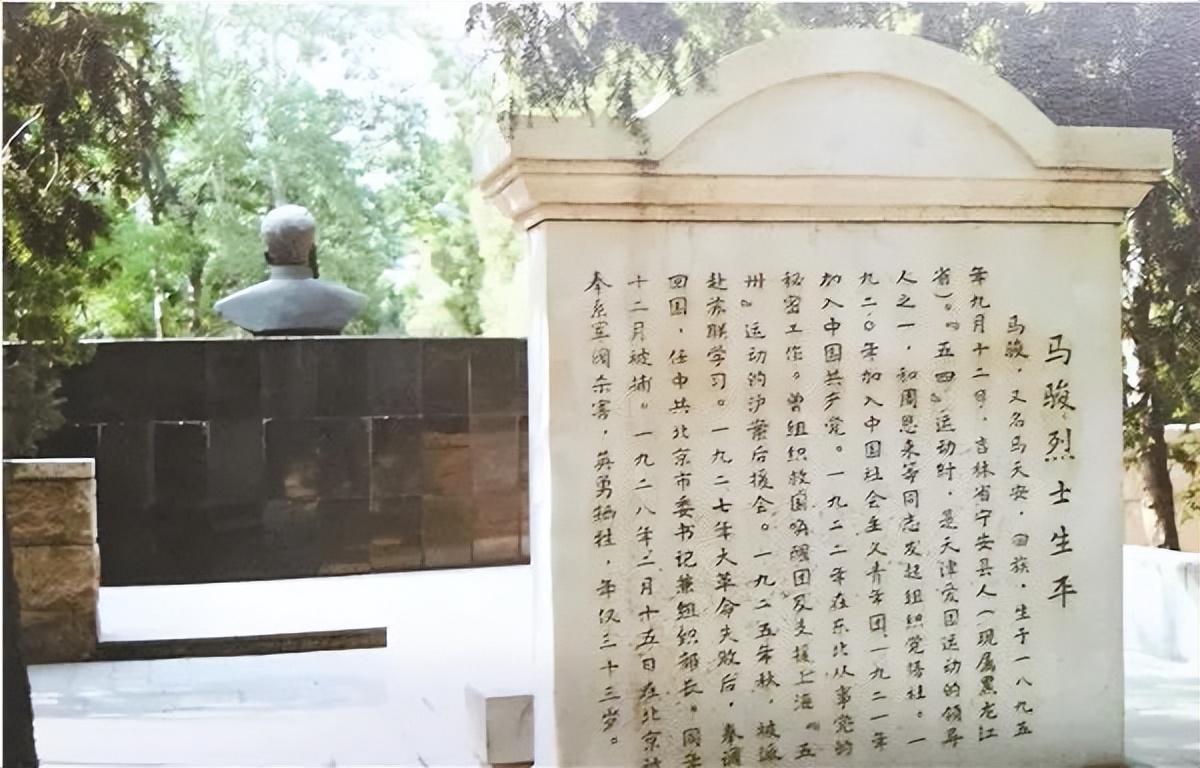 马骏烈士生平
马骏，又名马天安，回族，生于一八九五
年九月十二日，吉林省宁安县人（现属黑龙江
省）。『五四』运动时，是天津爱国运动的领导
人之一，和周恩来等同志发起组织觉悟社。一
九二〇年加入中国社会主义青年团，一九二一年
加入中国共产党。一九二二年在东北从事党的
秘密工作。曾组织救国唤醒团及支援上海『五
卅』运动的沪案后援会。一九二五年秋，被派
赴苏联学习。一九二七年大革命失败后，奉调
回国，任中共北京市委书记兼组织部长。同年
十二月被捕。一九二八年二月十五日在北京被
奉系军阀杀害，英勇牺牲，年仅三十三岁。